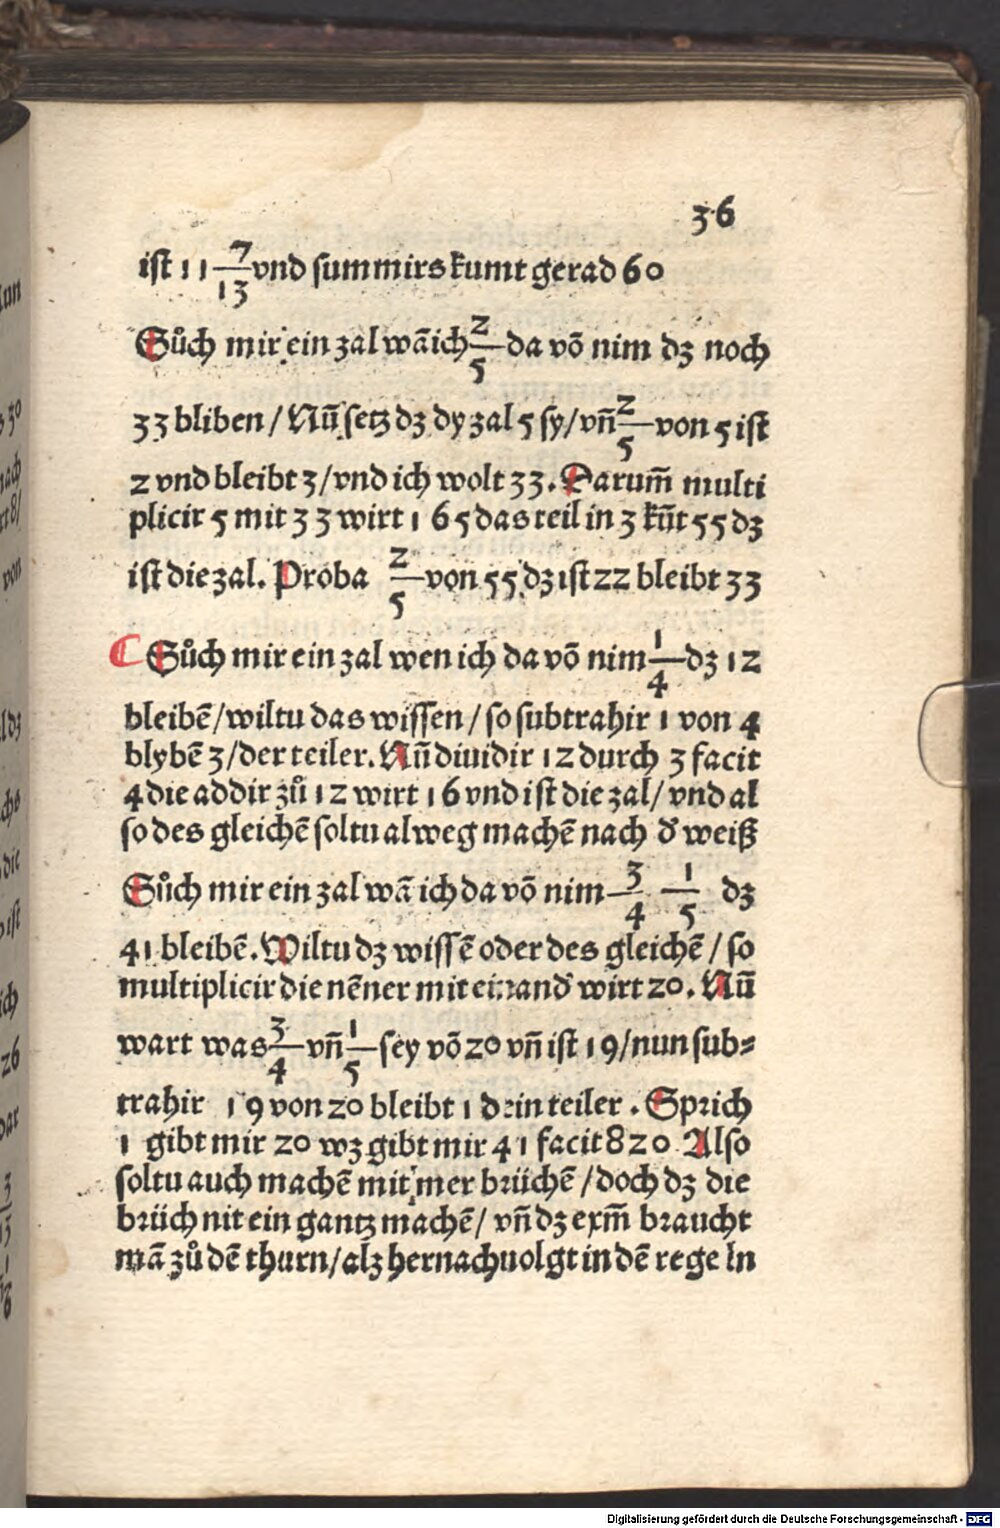 36
ist 11 7/13 vnd summirs kumt gerad 60
Sůch mir ein zal wā ich 2/5 da vō nim dz noch
33 bliben / Nū setz dz dy zal 5 sy / vn̄ 2/5 von 5 ist
2 vnd bleibt 3 / vnd ich wolt 33. Darum̄ multi
plicir 5 mit 33 wirt 165 das teil in 3 kūt 55 dz
ist die zal. Proba 2/5 von 55 dz ist 22 bleibt 33
Sůch mir ein zal wen ich da vō nim 1/4 dz 12
bleibē / wiltu das wissen / so subtrahir 1 von 4
blybē 3 / der teiler. Nū diuidir 12 durch 3 facit
4 die addir zů 12 wirt 16 vnd ist die zal / vnd al
so des gleichē soltu alweg machē nach d' weiß
Sůch mir ein zal wā ich da vō nim 3/4 1/5 dz
41 bleibē. Wiltu dz wissē oder des gleichē / so
multiplicir die nēner mit einand' wirt 20. Nū
wart was 3/4 vn̄ 1/5 sey vō 20 vn̄ ist 19 / nun sub⸗
trahir 19 von 20 bleibt 1 dein teiler. Sprich
1 gibt mir 20 wz gibt mir 41 facit 820. Also
soltu auch machē mit mer brüchē / doch dz die
brüch nit ein gantz machē / vn̄ dz exm̄ braucht
mā zů dē thurn / alz hernachuolgt in dē regeln
Digitalisierung gefördert durch die Deutsche Forschungsgemeinschaft - DFG